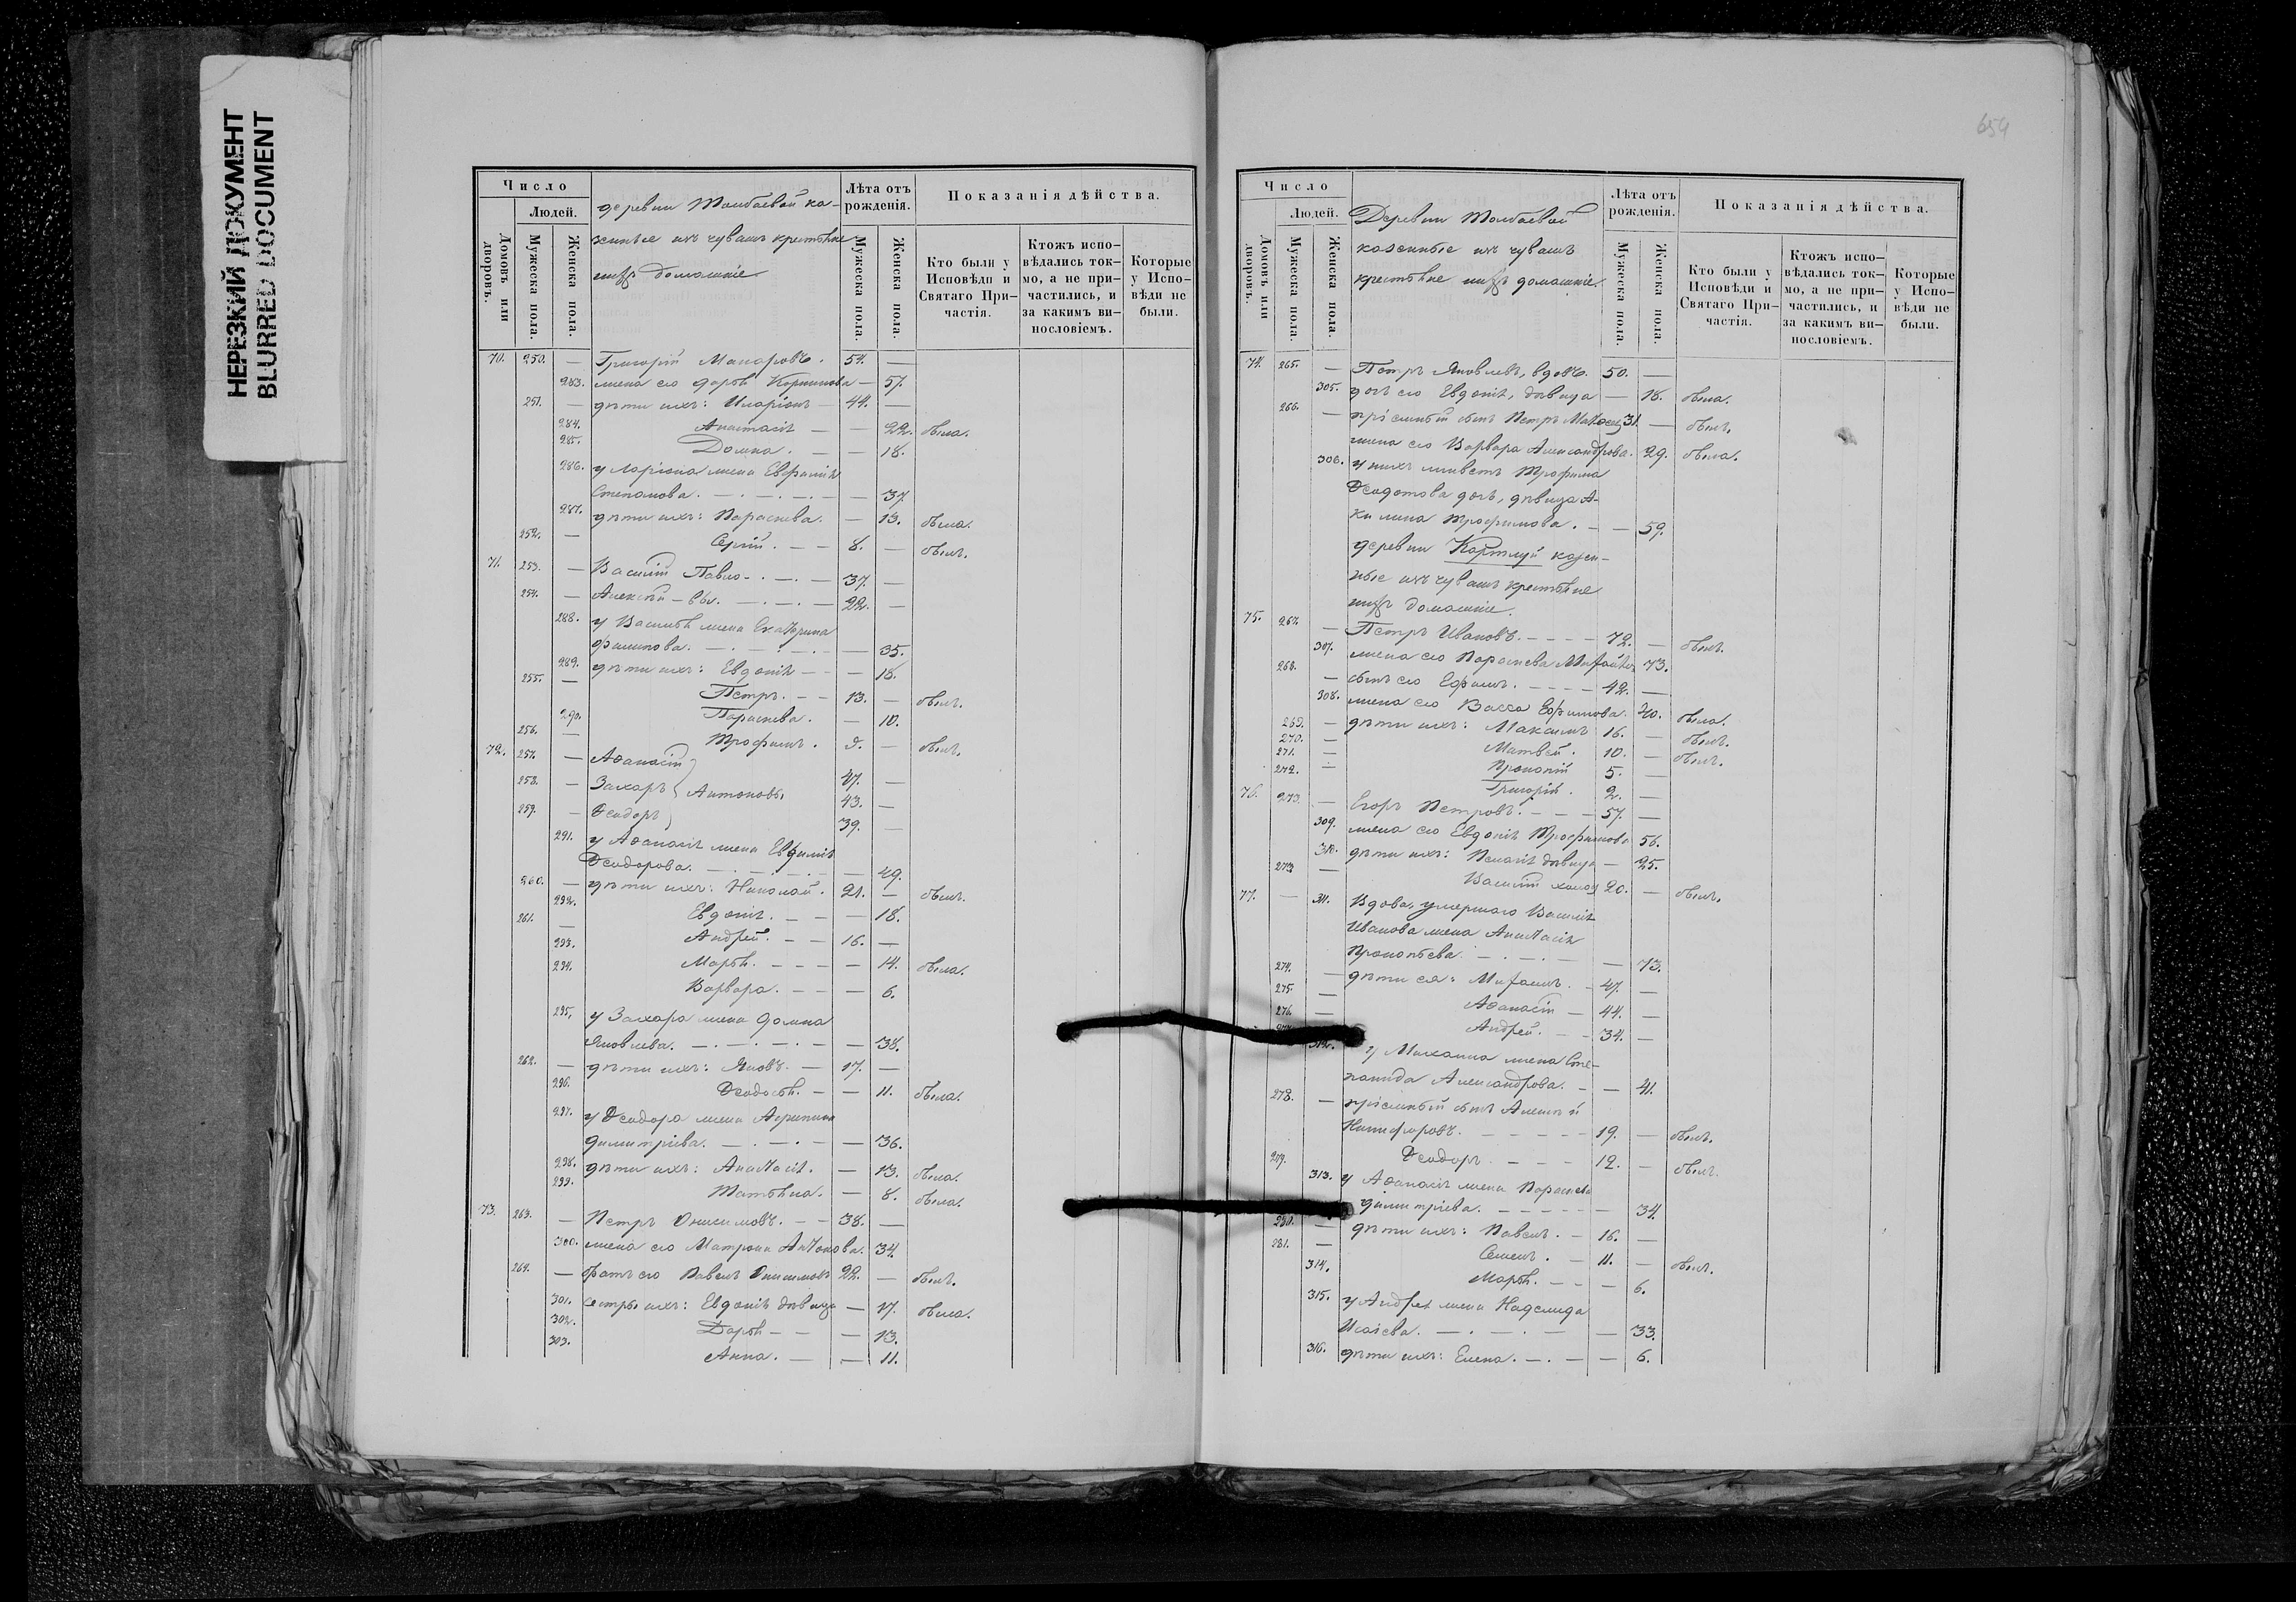 НЕРЕЗКИЙ ДОКУМЕНТ
BLURRED DOCUMENT
Число
Людей.
Домовъ или дворовъ.
Мужеска пола.
Женска пола.
деревни Толбаевой ка-
зенные изъ чувашъ крестьяне
и ихъ домашніе
Лѣта отъ рожденія.
Мужеска пола.
Женска пола.
Показанія дѣйства.
Кто были у Исповѣди и Святаго Причастія.
Ктожъ исповѣдались токмо, а не причастились, и за какимъ винословіемъ.
Которые у Исповѣди не были.
70. 250. — Григорій Макаровъ. 54. —
283. жена его Дарья — 57.
251. — дѣти ихъ: Иларіонъ — 44. —
284. Анастасія — — 22. была.
285. Домна. — — 18.
286. у Ларіона жена Евфимія
Степанова. — 37.
287. дѣти ихъ: Параскева. — 13. была.
252. — Сергій. — — 8. — былъ.
71. 253. — Василій Павло- — 37. —
254. — Алексѣй — вы. — 22. —
288. у Василья жена Екатерина
Филипова. — 35.
289. дѣти ихъ: Евдокія — — 18.
255. — Петръ. — — 13. — былъ.
290. Параскева. — 10.
256. — Трофимъ. 9. — былъ.
72. 257. — Аѳанасій
258. — Захаръ Антоновы 47. —
43. —
259. — Ѳеодоръ
39. —
291. у Аѳанасія жена Евфимія
Ѳеодорова. — 49.
260. — дѣти ихъ: Николай. 21. — былъ.
292. Евдокія. — — — 18.
261. — Андрей. — — 16. —
293. Марья. — — — 14. была.
294. Варвара. — — — 6.
295. у Захара жена Домна
Яковлева. — 38.
262. — дѣти ихъ: Яковъ. — 17. —
296. Ѳеодосья. — — 11. была.
297. у Ѳеодора жена Агрипина
Димитріева. — 36.
298. дѣти ихъ: Анастасія. — 13. была.
299. Татьяна. — 8. была.
73. 263. — Петръ Онисимовъ. — — 38. —
300. жена его Матрона Антонова. 34.
264. — братъ его Павелъ Онисимовъ 22. — былъ.
301. сестры ихъ: Евдокія дѣвица — 17. была.
302. Дарья — — — 13.
303. Анна. — — 11.
654
Число
Людей.
Домовъ или дворовъ.
Мужеска пола.
Женска пола.
Деревни Толбаевой
казенные изъ чувашъ
крестьяне и ихъ домашніе.
Лѣта отъ рожденія.
Мужеска пола.
Женска пола.
Показанія дѣйства.
Кто были у Исповѣди и Святаго Причастія.
Ктожъ исповѣдались токмо, а не причастились, и за какимъ винословіемъ.
Которые у Исповѣди не были.
74. 265. — Петръ Яковлевъ, вдовъ. 50. —
305. дочь его Евдокія, дѣвица — 18. была.
266. — пріемный сынъ Петръ 31. — былъ.
жена его Варвара Александрова. 29. была.
306. у нихъ живетъ Трофима
Ѳедотова дочь, дѣвица А-
килина Трофимова. — — 59.
деревни Картлуй казен-
ные изъ чувашъ крестьяне
и ихъ домашніе.
75. 267. — Петръ Ивановъ. — — — — 72. — былъ.
307. жена его Параскева 73.
268. — сынъ его Ефимъ. — — — — 42. —
308. жена его Васса Ефимова. 40. была.
269. — дѣти ихъ: Максимъ 16. — былъ.
270. — Матвей. 10. — былъ.
271. — Прокопій 5. —
272. — Григорій. 2. —
76. 273. — Егоръ Петровъ. — — — 57. —
309. жена его Евдокія Трофимова 56.
310. дѣти ихъ: Пелагія дѣвица — 25.
273 — Василій холос 20. — былъ.
77. — 311. Вдова, умершаго Василія
Иванова жена Анастасія
Прокопьева. — 73.
274. — дѣти ея: 47. —
275. — Аѳанасій — 44. —
276. — Андрей. — — 34. —
312. у Михаила жена Сте-
панида Александрова. — — 41.
278. — пріемный сынъ Алексѣй
Никифоровъ. — — — — — 19. — былъ.
279. Ѳеодоръ. — — — 12. — былъ.
313. у Аѳанасія жена Параскева
Димитріева. — — — — — 34.
280. — дѣти ихъ: Павелъ. — 16. —
281. — Семенъ. — 11. — былъ.
314. Марья. — — — 6.
315. у Андрея жена Надежда
Исаіева. — 33.
316. дѣти ихъ: Елена. — — — 6.